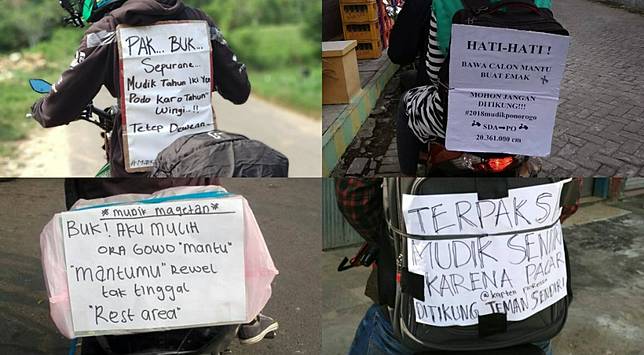 PAK... BUK...
Sepurane...
Mudik Tahun Iki Yo
Podo Karo Tahun"
Wingi..!!
Tetep Dewean...
HATI-HATI !
BAWA CALON MANTU
BUAT EMAK
MOHON JANGAN
DITIKUNG!!!
#2018mudikponorogo
SDA PO
20.361.000 cm
*mudik magetan*
BUK! AKU MULIH
ORA GOWO "mantu"
"mantumu" Rewel
tak tinggal
"Rest area"
TERPAKSA
MUDIK SENDIRI
KARENA PACAR
DITIKUNG TEMAN SENDIRI